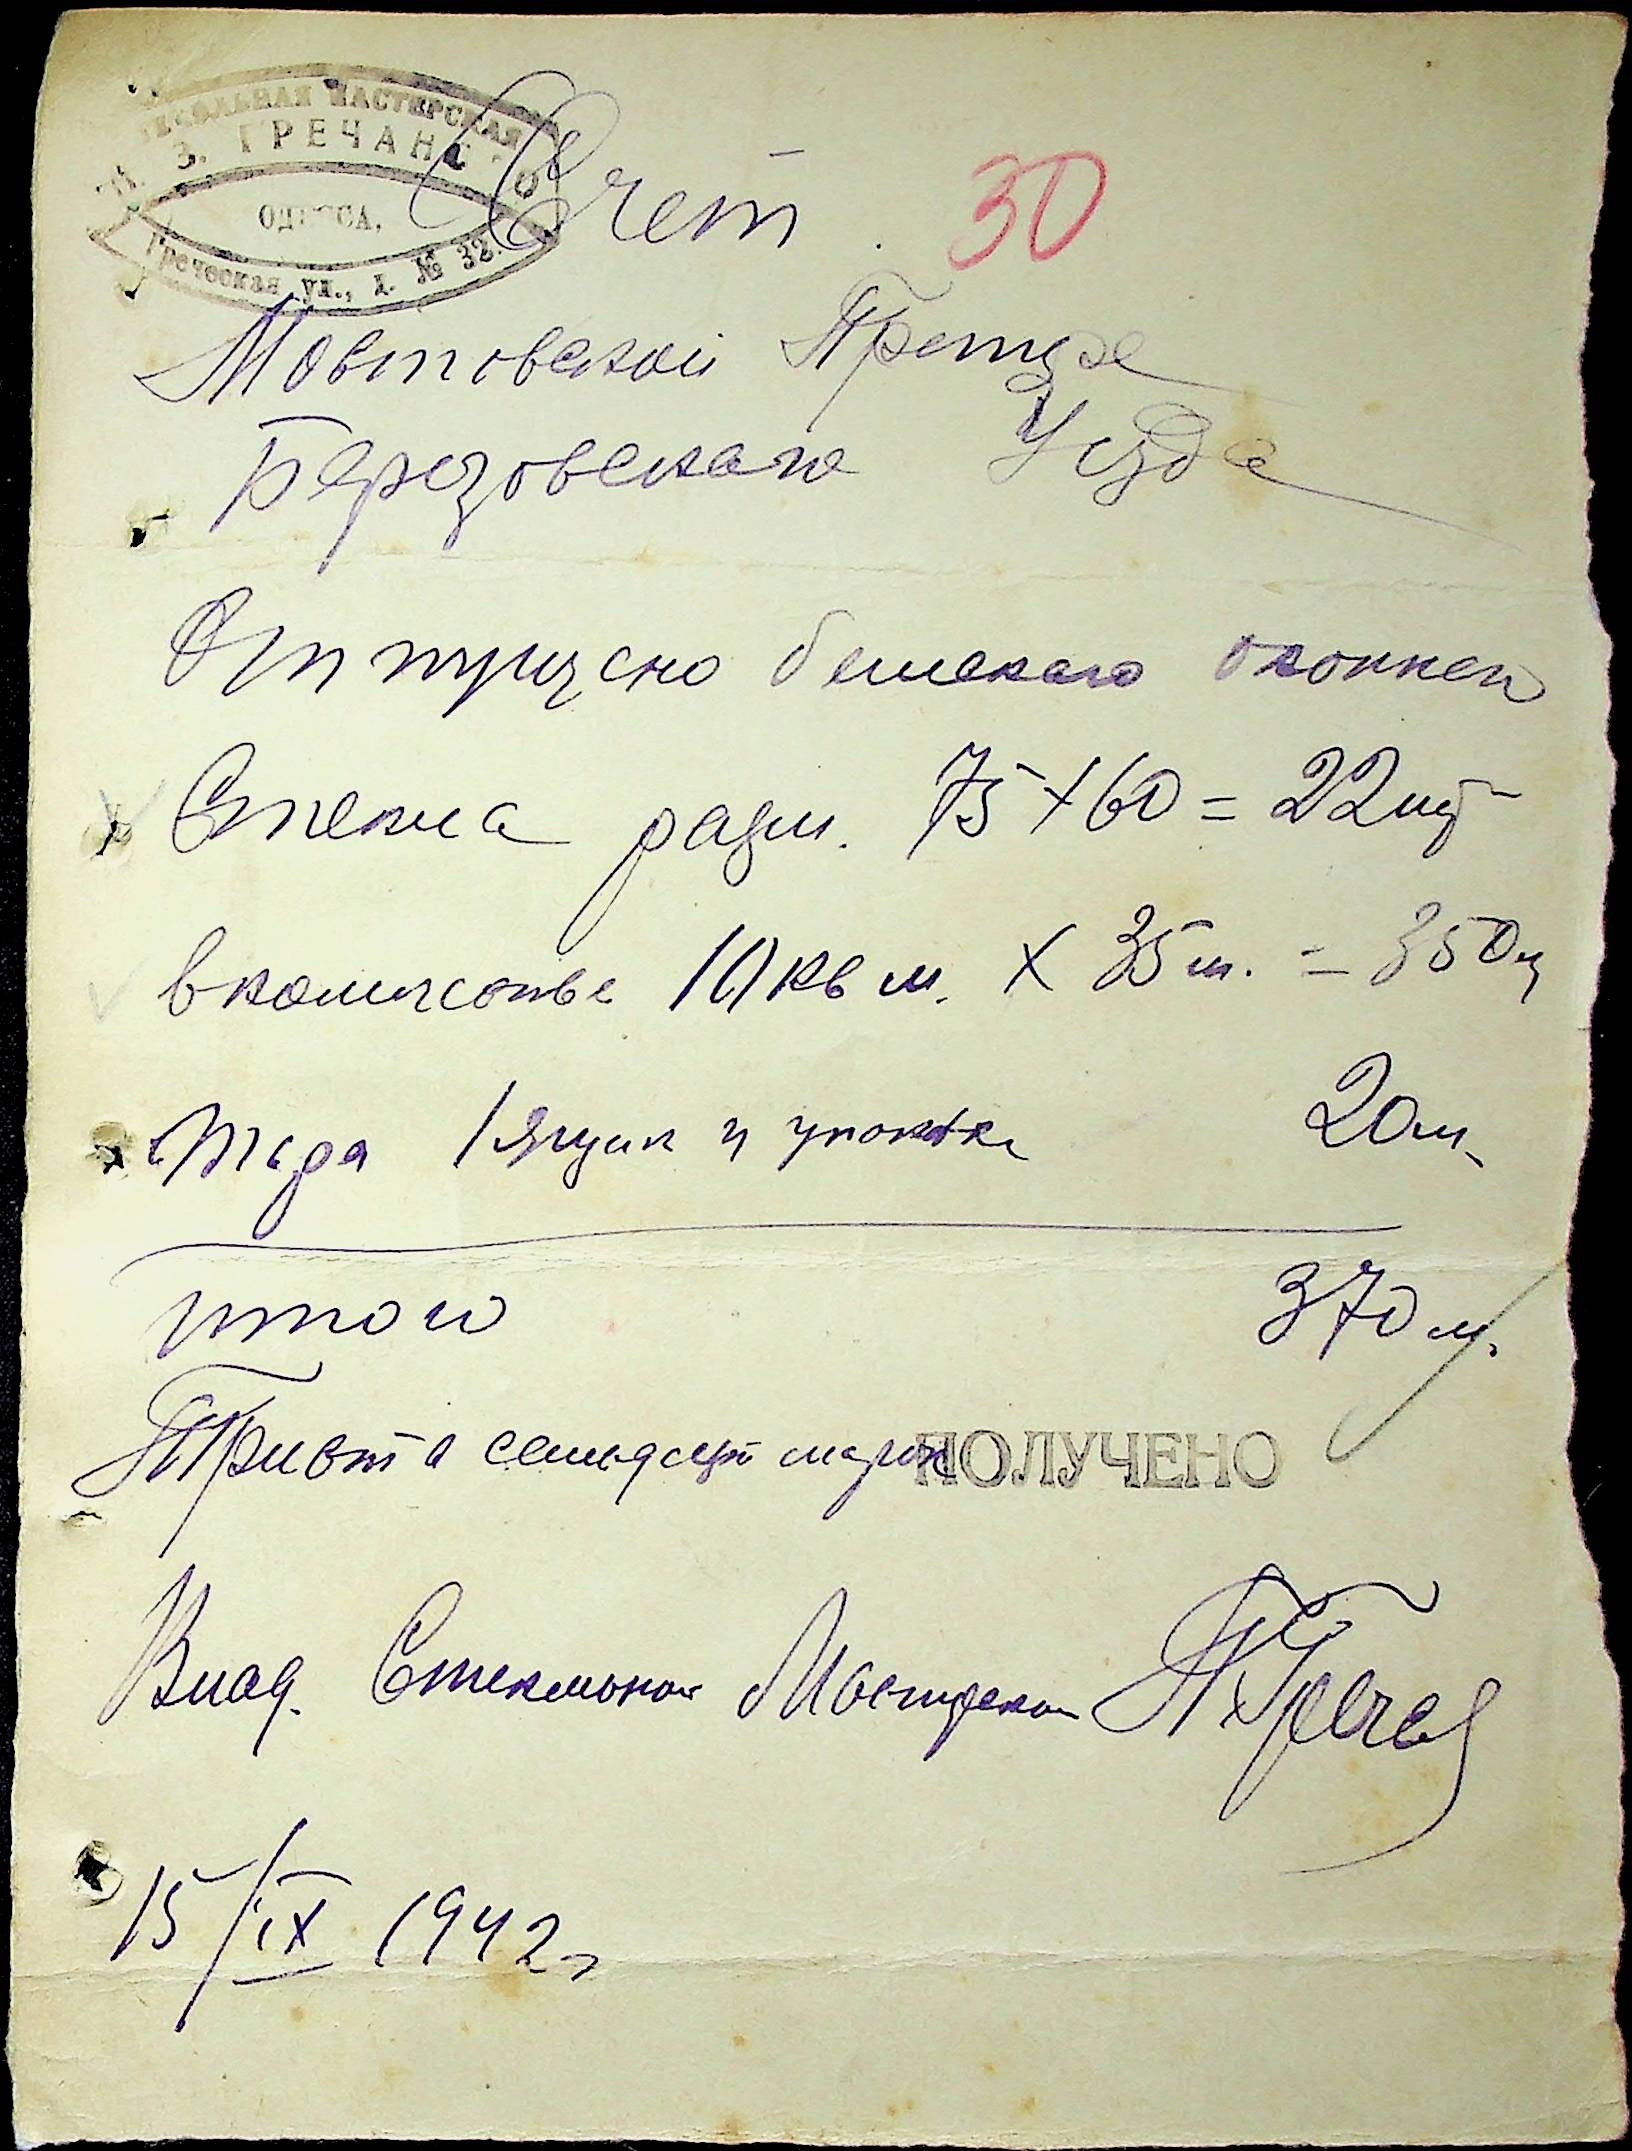 СТЕКОЛЬНАЯ МАСТЕРСКАЯ
З. ГРЕЧАН
ОДЕССА.
Греческая ул., д. № 32.
Счет
30
Мостовской Претуре
Березовскаго Уезда
Отпущено белскаго оконнаго
Стекла разм. 75×60=22шт
в количестве 10 кв м. × 35 м. = 350 м
Тара 1 ящик и упаковка 20 м.
итого 370 м.
Триста семьдесят марок
ПОЛУЧЕНО
Влад. Стекольной Мастерской
15/IX 1942 г